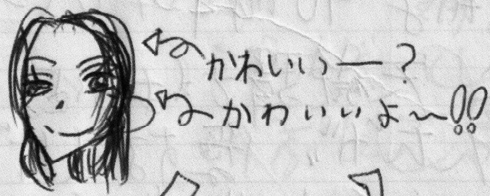 かわいいー？
かわいいよ〜!!